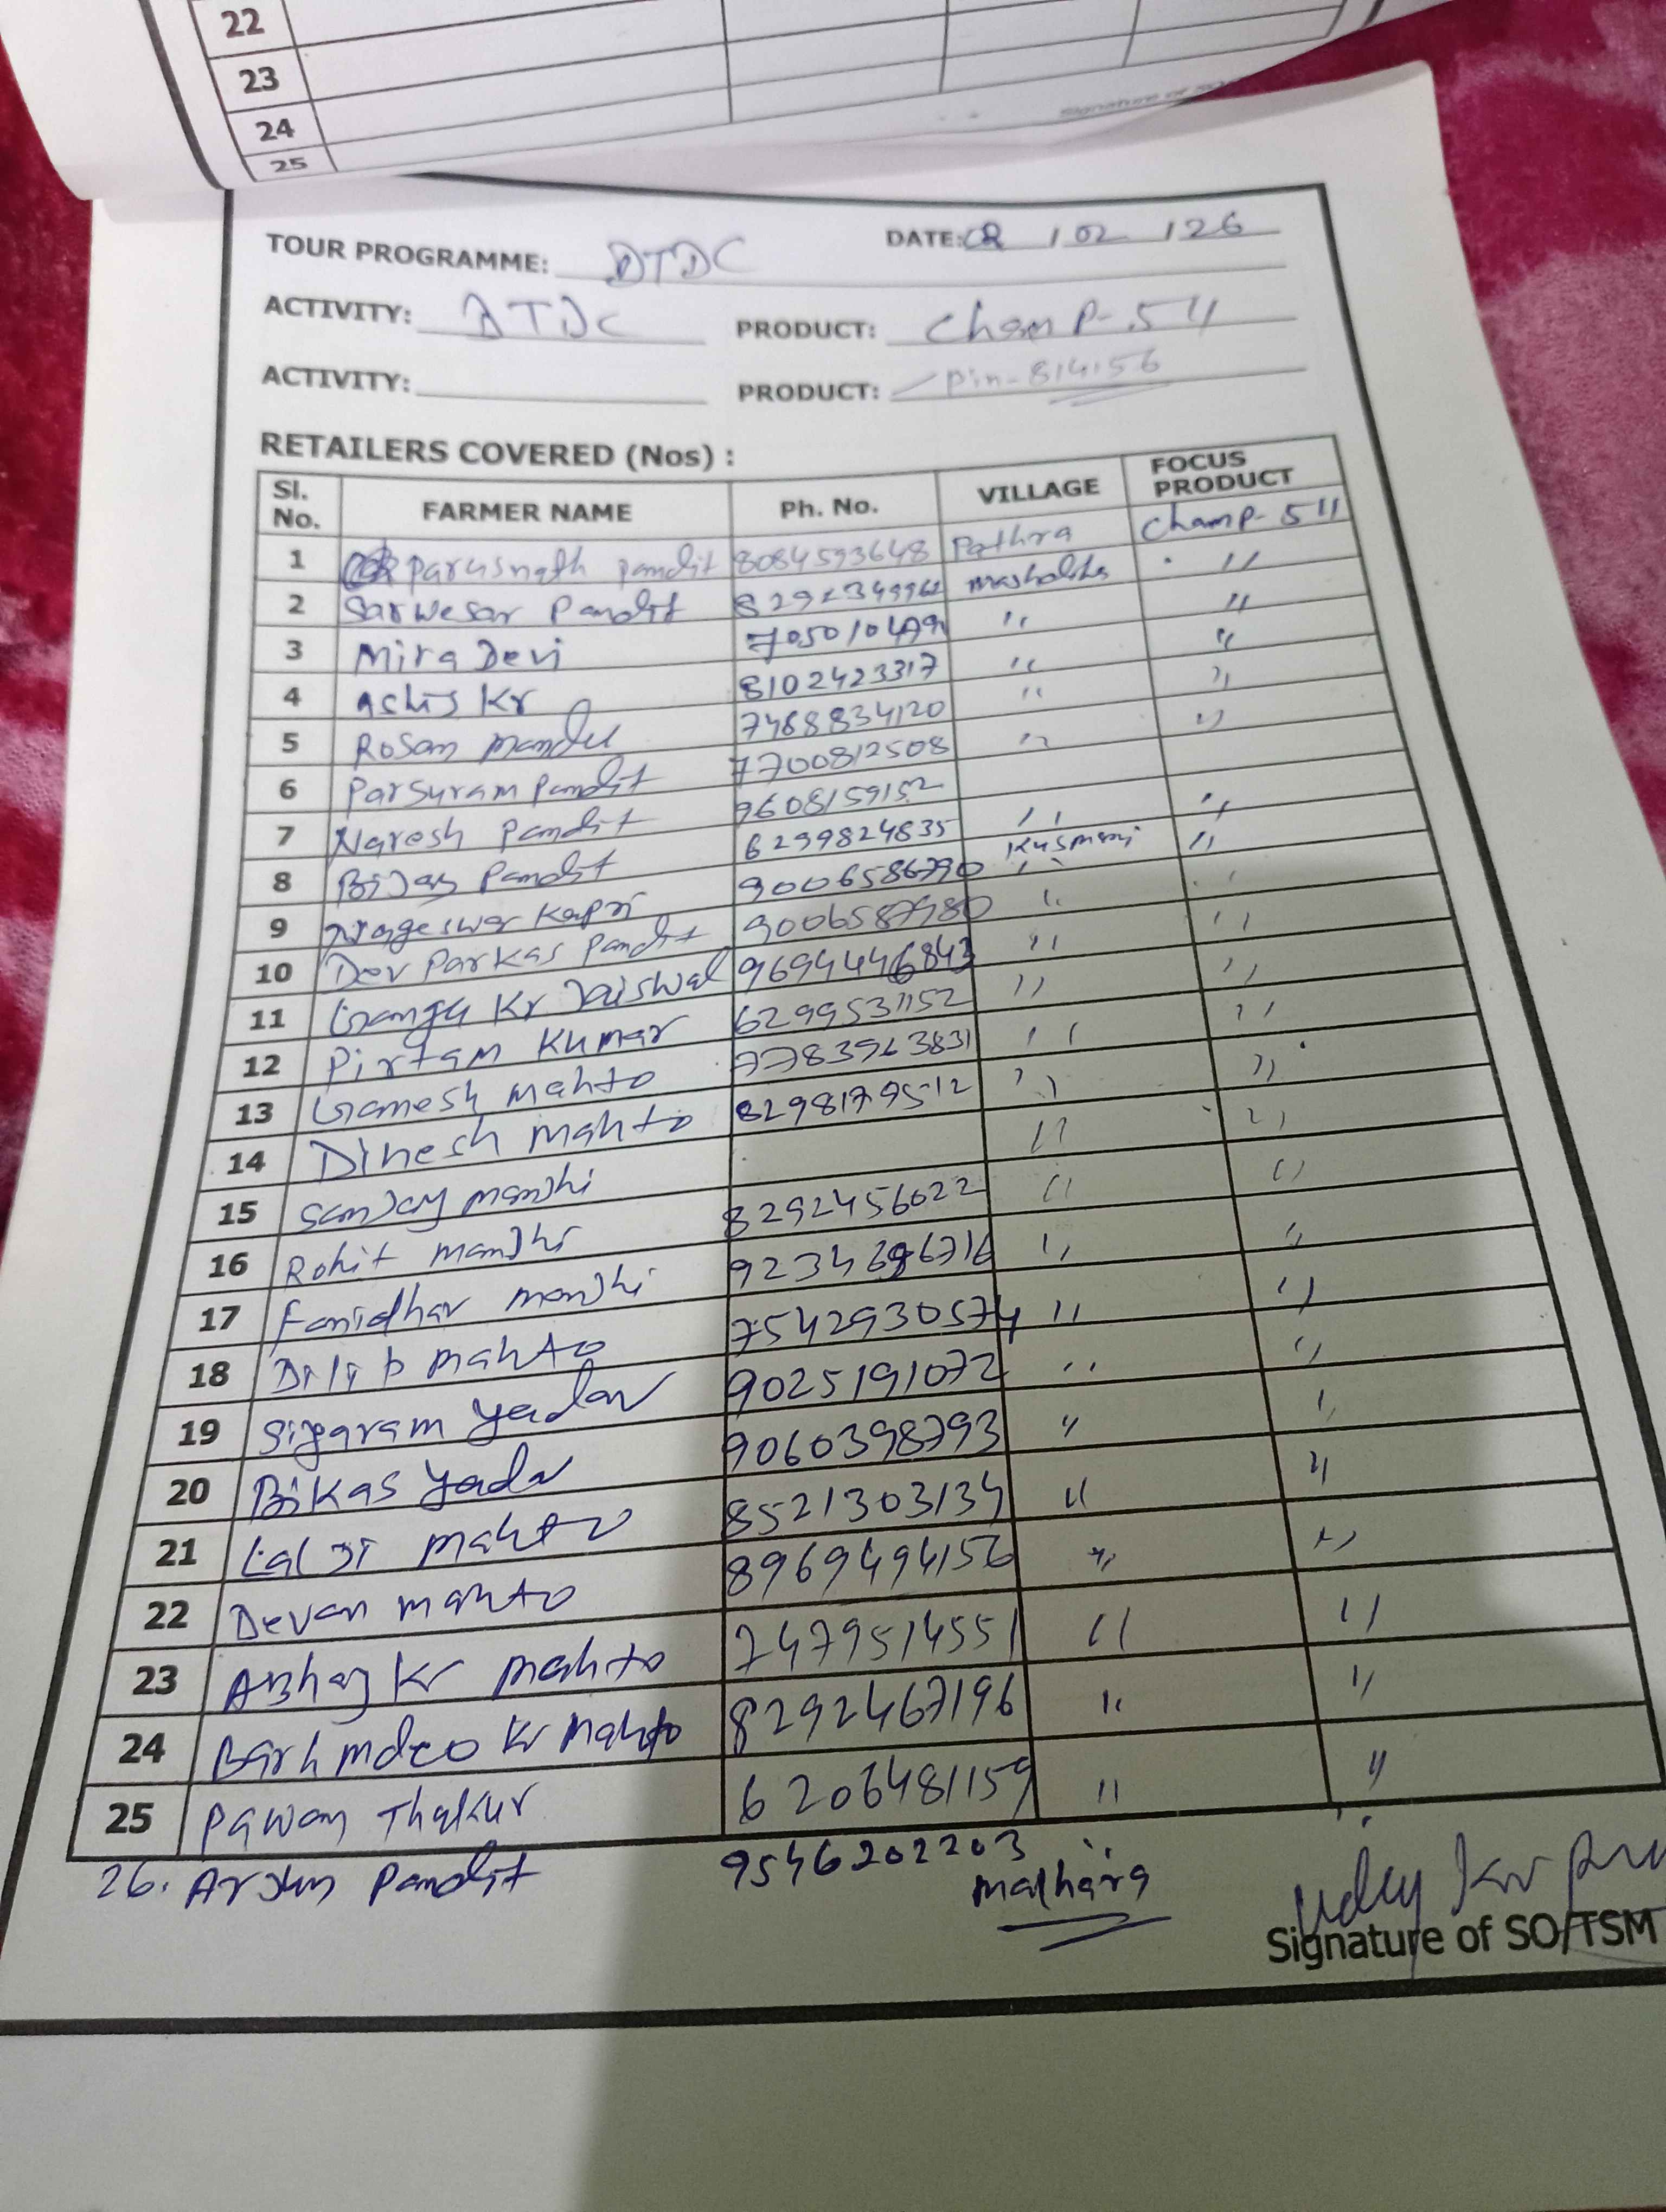 22
23
24
25
Signature of SO
TOUR PROGRAMME: DTDC DATE: 02 / 02 / 26
ACTIVITY: DTDC PRODUCT: Champ-511
ACTIVITY: PRODUCT: Pin-814156
RETAILERS COVERED (Nos) :
Sl. No. FARMER NAME Ph. No. VILLAGE FOCUS PRODUCT
1 Parasnath pandit 8084593648 Pathra Champ-511
2 Sarwesar Pandit "
3 Mira Devi " "
4 Ashis Kr 8102423317 " "
5 Rosan Mandal 7468834120 " "
6 Parsuram Pandit 7700812508 " "
7 Naresh Pandit 9608159152
8 Bijay Pandit 6299824835 " "
9 Nageswar Kapri 9006586790 " "
10 Dev Parkas Pandit 9006587980 " "
11 Ganga Kr Jaiswal 9694446843 " "
12 Pirtam Kumar 6299531152 " "
13 Ganesh Mahto 7783963831 " "
14 Dinesh Mahto 8298179512 " "
15 Sanjay Manjhi " "
16 Rohit Manjhi 8292456022 " "
17 Fanidhar Manjhi " "
18 Dilip Mahto 7542930574 " "
19 Siyaram Yadav 9025191072 " "
20 Bikas Yadav 9060398793 " "
21 Lal Ji Mahto 8521303134 " "
22 Devan Mahto 8969494156 " "
23 Abhay Kr Mahto 7479514551 " "
24 Barhmdeo Kr Mahto 8292467196 " "
25 Pawan Thakur 6206481159 " "
26. Arjun Pandit 9546202203 Malhara
Uday Kr
Signature of SO/TSM